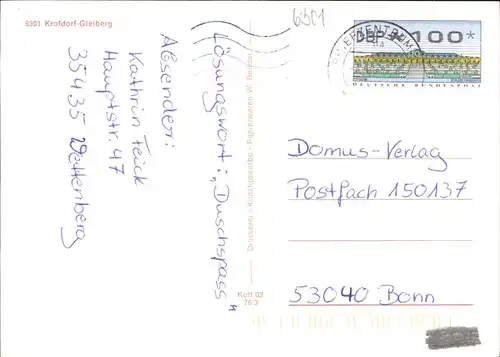 6301 Krofdorf-Gleiberg
6301
DBP
*100*
DEUTSCHE BUNDESPOST
Absender:
Kathrin Feick
Hauptstr. 47
35435 Wettenberg
Lösungswort: „Duschspass"
Kroff 02
76/3
Domus-Verlag
Postfach 150137
53040 Bonn